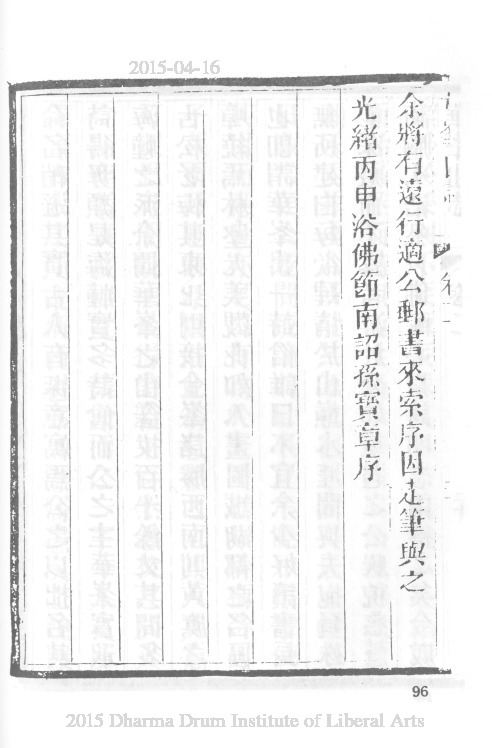 2015-04-16
余將有遠行適公郵書來索序因走筆與之
光緒丙申浴佛節南詔孫寶章序
96
2015 Dharma Drum Institute of Liberal Arts